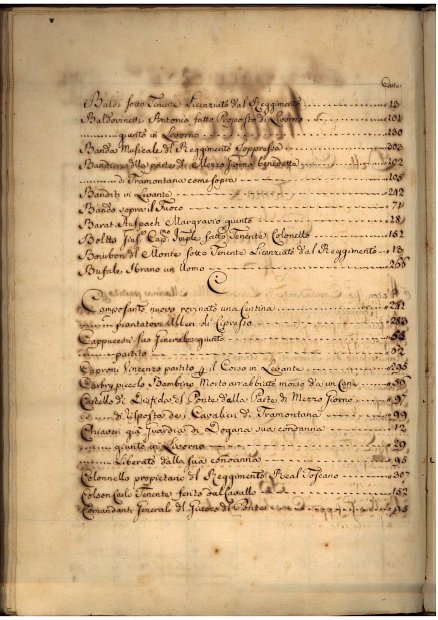 Carte
Baldi sotto Tenente Licenziato dal Reggimento 13
Baldovinetti Antonio fatto Proposto di Livorno 104
giunto in Livorno 130
Banda Musicale del Reggimento soppressa 303
Bandiere della parte di Mezzo Giorno benedette 102
di Tramontana come sopra 105
Banditi in Levante 212
Bando sopra il Fuoco 71
Barat Aufpach Margravio giunto 281
Boltto Capo Imple fatto Tenente Colonello 162
Bourbon del Monte sotto Tenente Licenziato dal Reggimento 13
Bufale sbrano un Uomo 266
C
Camposanto nuovo rovinato una Centina 241
piantatovi Alberi di Cipresso 253
Cappuccini suo Generale giunto 53
partito 62
Caproni Vincenzo partito p il Corso in Levante 295
Carbry piccolo Bambino Morto arrabbiato morso da un Cane 36
Cartello di Disfida al Ponte dalla Parte di Mezzo Giorno 97
di risposta de i Cavalieri di Tramontana 99
Chiaveri già Guardia di Dogana sua condanna 12
giunto in Livorno 29
Liberato dalla sua condanna 95
Colonnello proprietario del Reggimento Real Toscano 307
Colson Carlo Tenente ferito dal Cavallo 152
Comandante Generale del Giuoco del Ponte 95